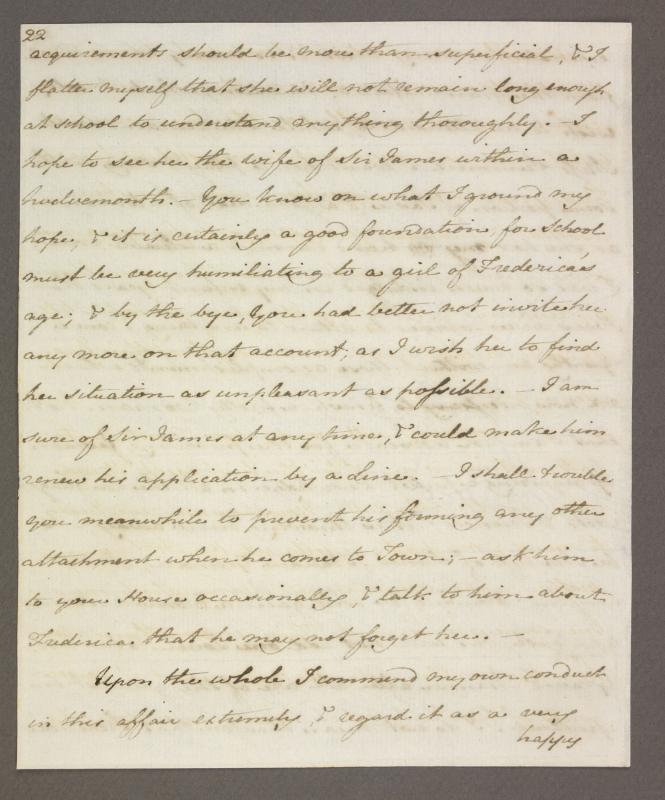 22
acquirements should be more than superficial, & I
flatter myself that she will not remain long enough
at school to understand anything thoroughly. – I
hope to see her the wife of Sir James within a
twelvemonth. – You know on what I ground my
hope, & it is certainly a good foundation, for School
must be very humiliating to a girl of Frederica's
age; & by the bye, you had better not invite her
any more on that account, as I wish her to find
her situation as unpleasant as possible. – I am
sure of Sir James at any time, & could make him
renew his application by a Line. – I shall trouble
you meanwhile to prevent his forming any other
attachment when he comes to Town; – ask him
to your House occasionally, & talk to him about
Frederica that he may not forget her. –
Upon the whole I commend my own conduct
in this affair extremely, & regard it as a very
happy